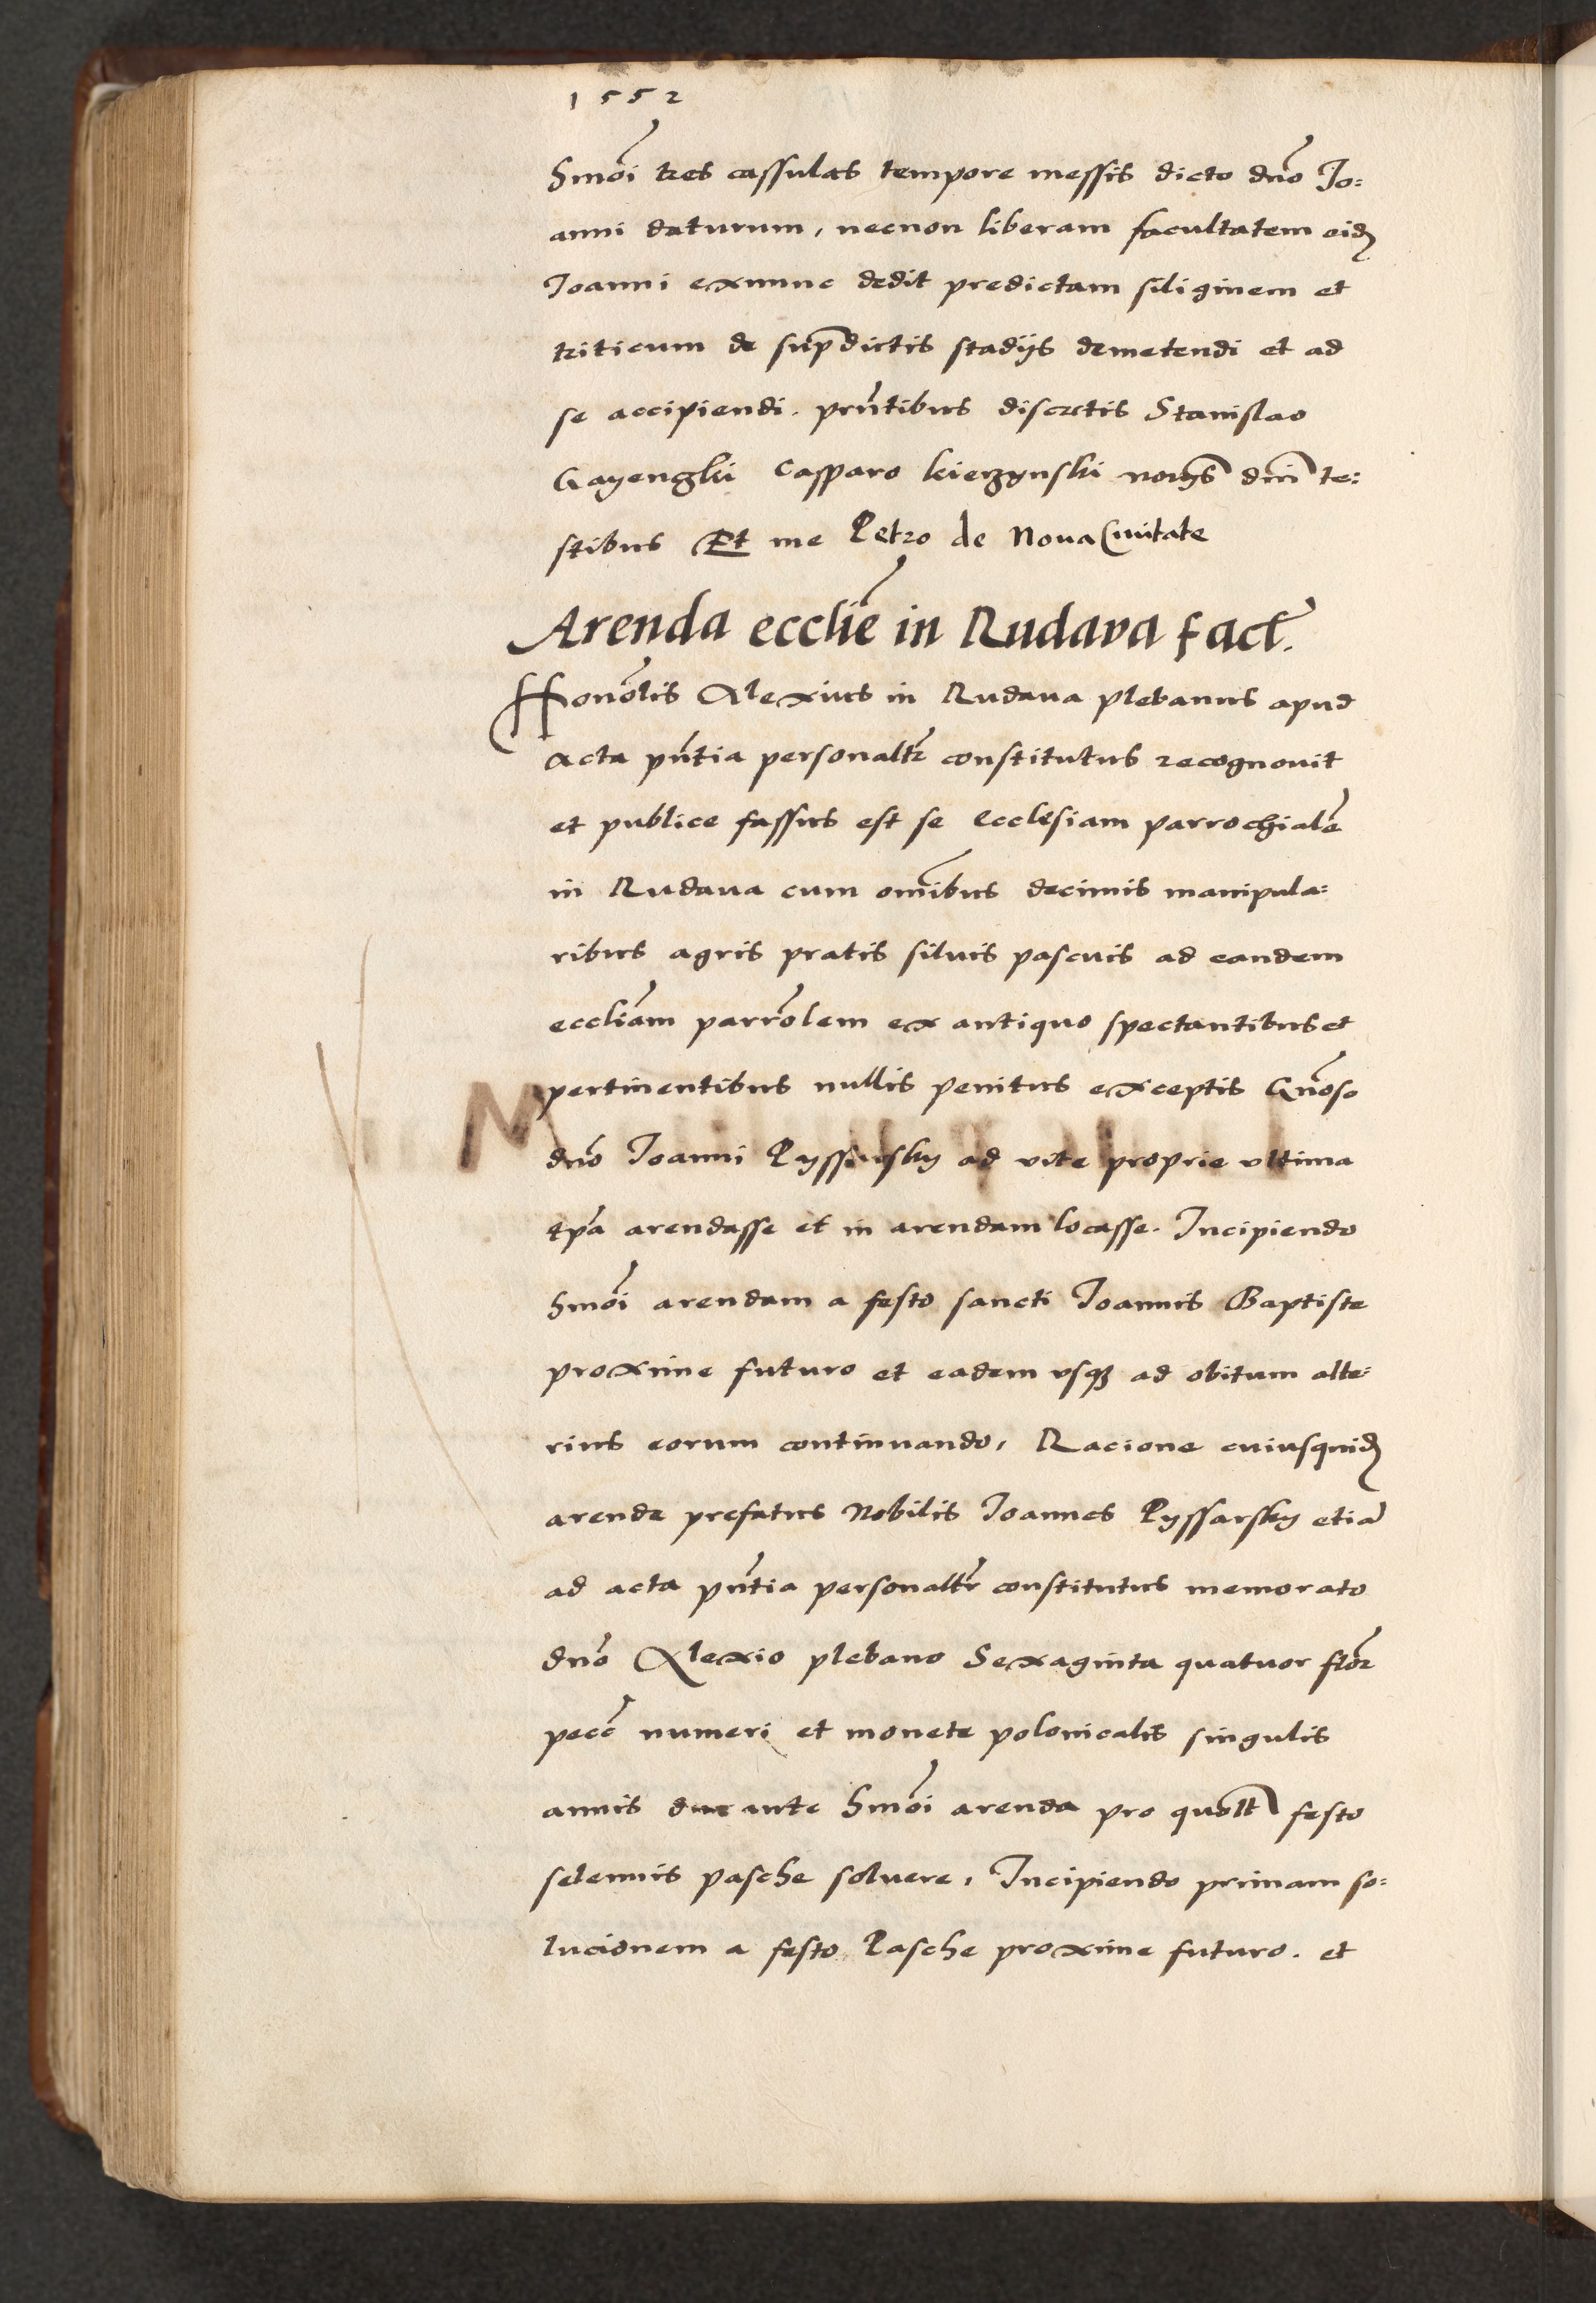 1552
Hmõi tres cassulas tempore messis dicto dno Jo:
anni daturum, necnon liberam facultatem eid
Joanni exnunc dedit predictam siliginem et
triticum de supdictis stadiis demetendi et ad
se accipiendi. pntibus discretis Stanislao
Casparo te:
stibus Et me Petro de Nova Civitate
Arenda ecclie in Rudava fact.
Honolis Alexius in Rudava plebanus apud
acta pntia personaltr constitutus recognovit
et publice fassus est se ecclesiam parrochiale
in Rudava cum omibus decimis manipula:
ribus agris pratis silvis pascuis ad eandem
eccliam parrolem ex antiquo spectantibus et
pertinentibus nullis penitus exceptis Gnoso
dno Joanni Pyssarsky ad vite proprie ultima
tpa arendasse et in arendam locasse. Incipiendo
hmoi arendam a festo sancti Joannis Baptiste
proxime futuro et eadem usq ad obitum alte:
rius eorum continuando, Racione cuiusquid
arende prefatus Nobilis Joannes Pyssarsky etia
ad acta pntia personaltr constitutus memorato
dno Alexio plebano Sexaginta quatuor flor
pecc numeri et monete polonicalis singulis
annis durante hmoi arenda pro quolt festo
solennis pasche solvere, Incipiendo primam so:
lucionem a festo Pasche proxime futuro. et